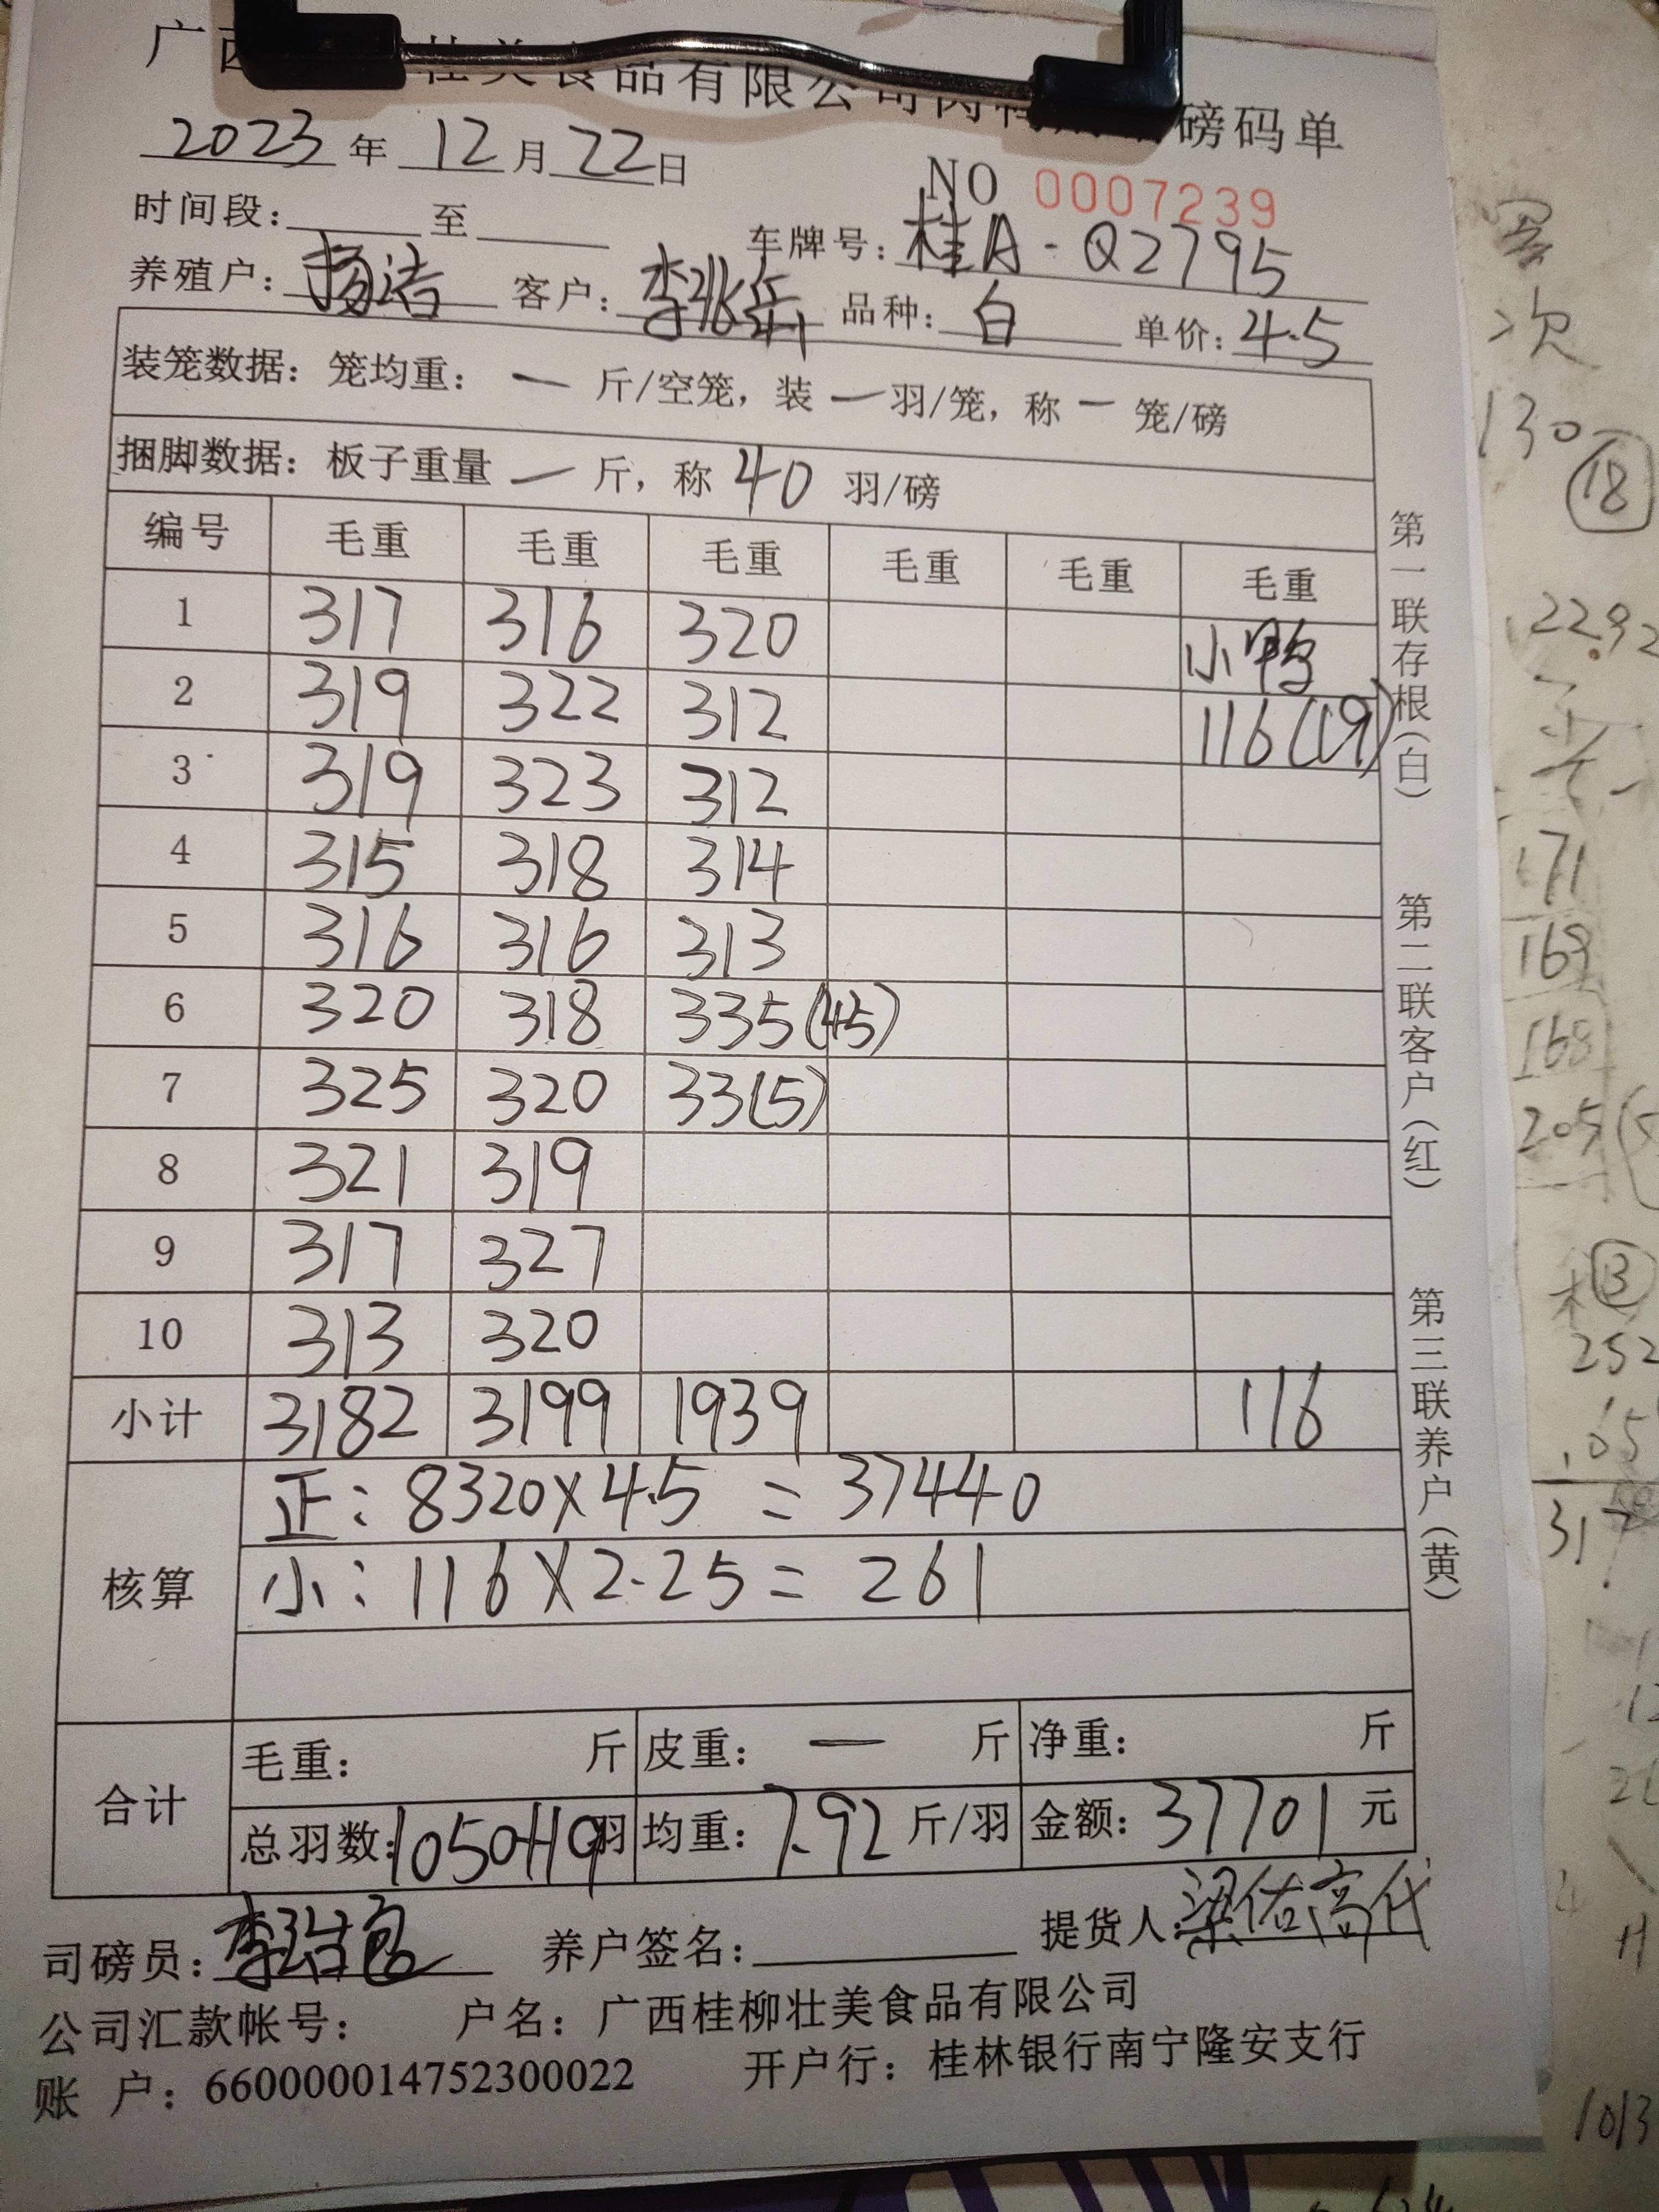 广西 壮美食品有限公司肉鸭 磅码单
2023 年 12 月 22 日
NO 0007239
时间段: 至 车牌号: 桂A-Q2795
养殖户: 杨洁 客户: 李兆兵 品种: 白 单价: 4.5
装笼数据: 笼均重: — 斤/空笼, 装 — 羽/笼, 称 — 笼/磅
捆脚数据: 板子重量 — 斤, 称 40 羽/磅
编号 毛重 毛重 毛重 毛重 毛重 毛重
1 317 316 320 小鸭
2 319 322 312 116(19)
3 319 323 312
4 315 318 314
5 316 316 313
6 320 318 335(45)
7 325 320 33(5)
8 321 319
9 317 327
10 313 320
小计 3182 3199 1939 116
核算 正: 8320×4.5 = 37440
小: 116×2.25= 261
合计 毛重: 斤 皮重: — 斤 净重: 斤
总羽数: 1050+19 羽 均重: 7.92 斤/羽 金额: 37701 元
司磅员: 养户签名: 提货人: 梁佑高代
公司汇款帐号: 户名: 广西桂柳壮美食品有限公司
账 户: 660000014752300022 开户行: 桂林银行南宁隆安支行
第一联存根(白)
第二联客户(红)
第三联养户(黄)
次
130
18
171
169
168
205
252
1013